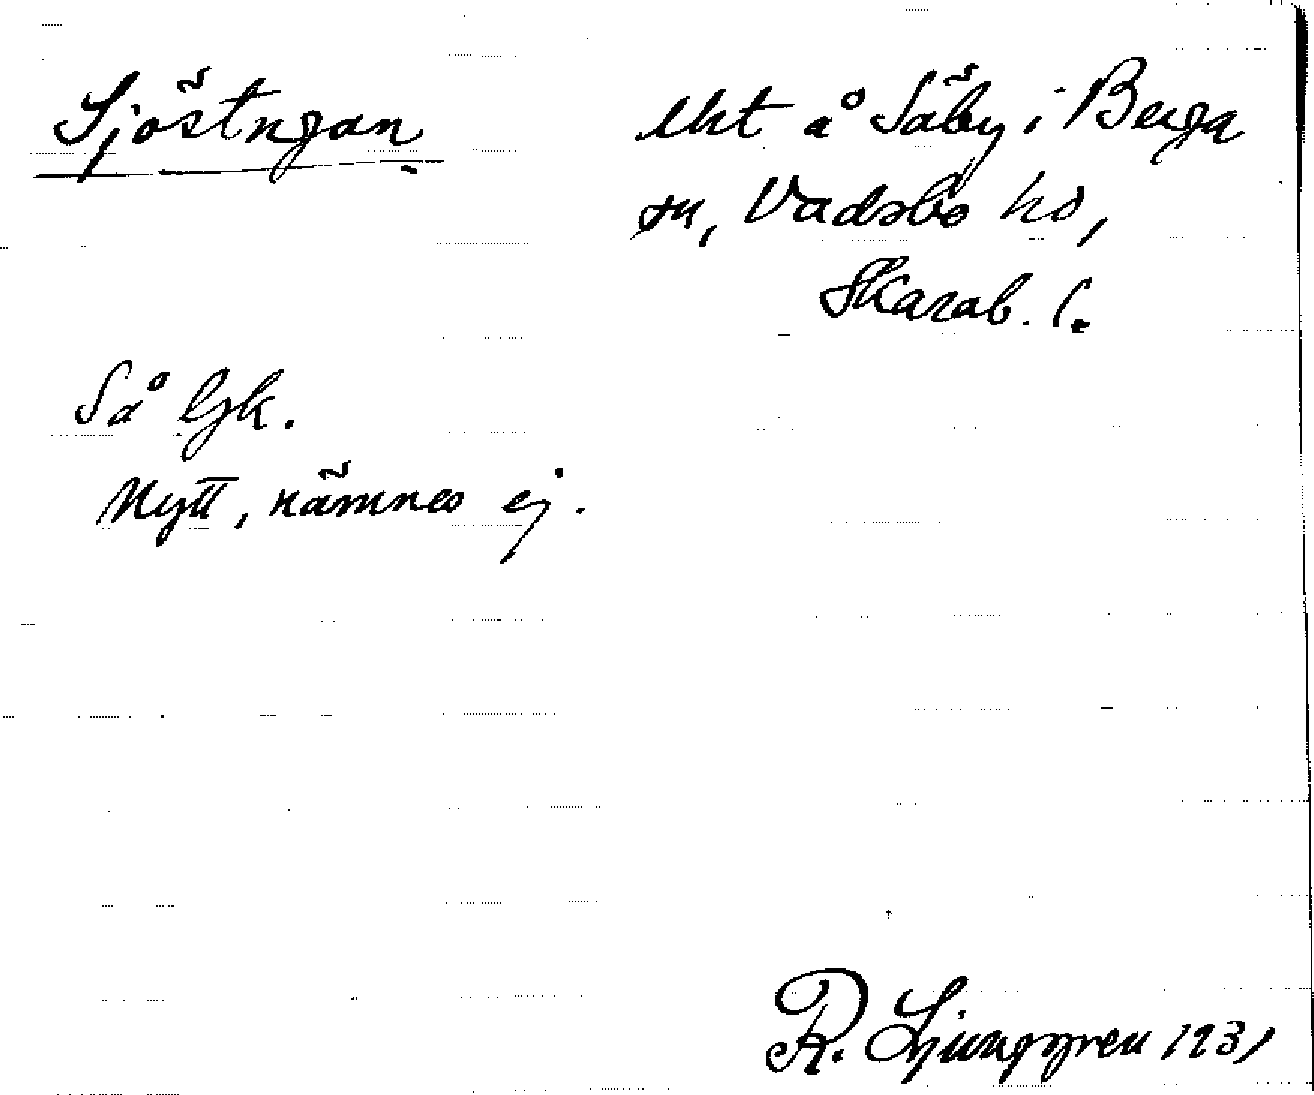 Sjöstugan
lht å Säby i Berga
sn, Vadsbo hd,
Skarab. l.
Så Gk.
Nytt, nämnes ej.
R. Ljunggren 1931